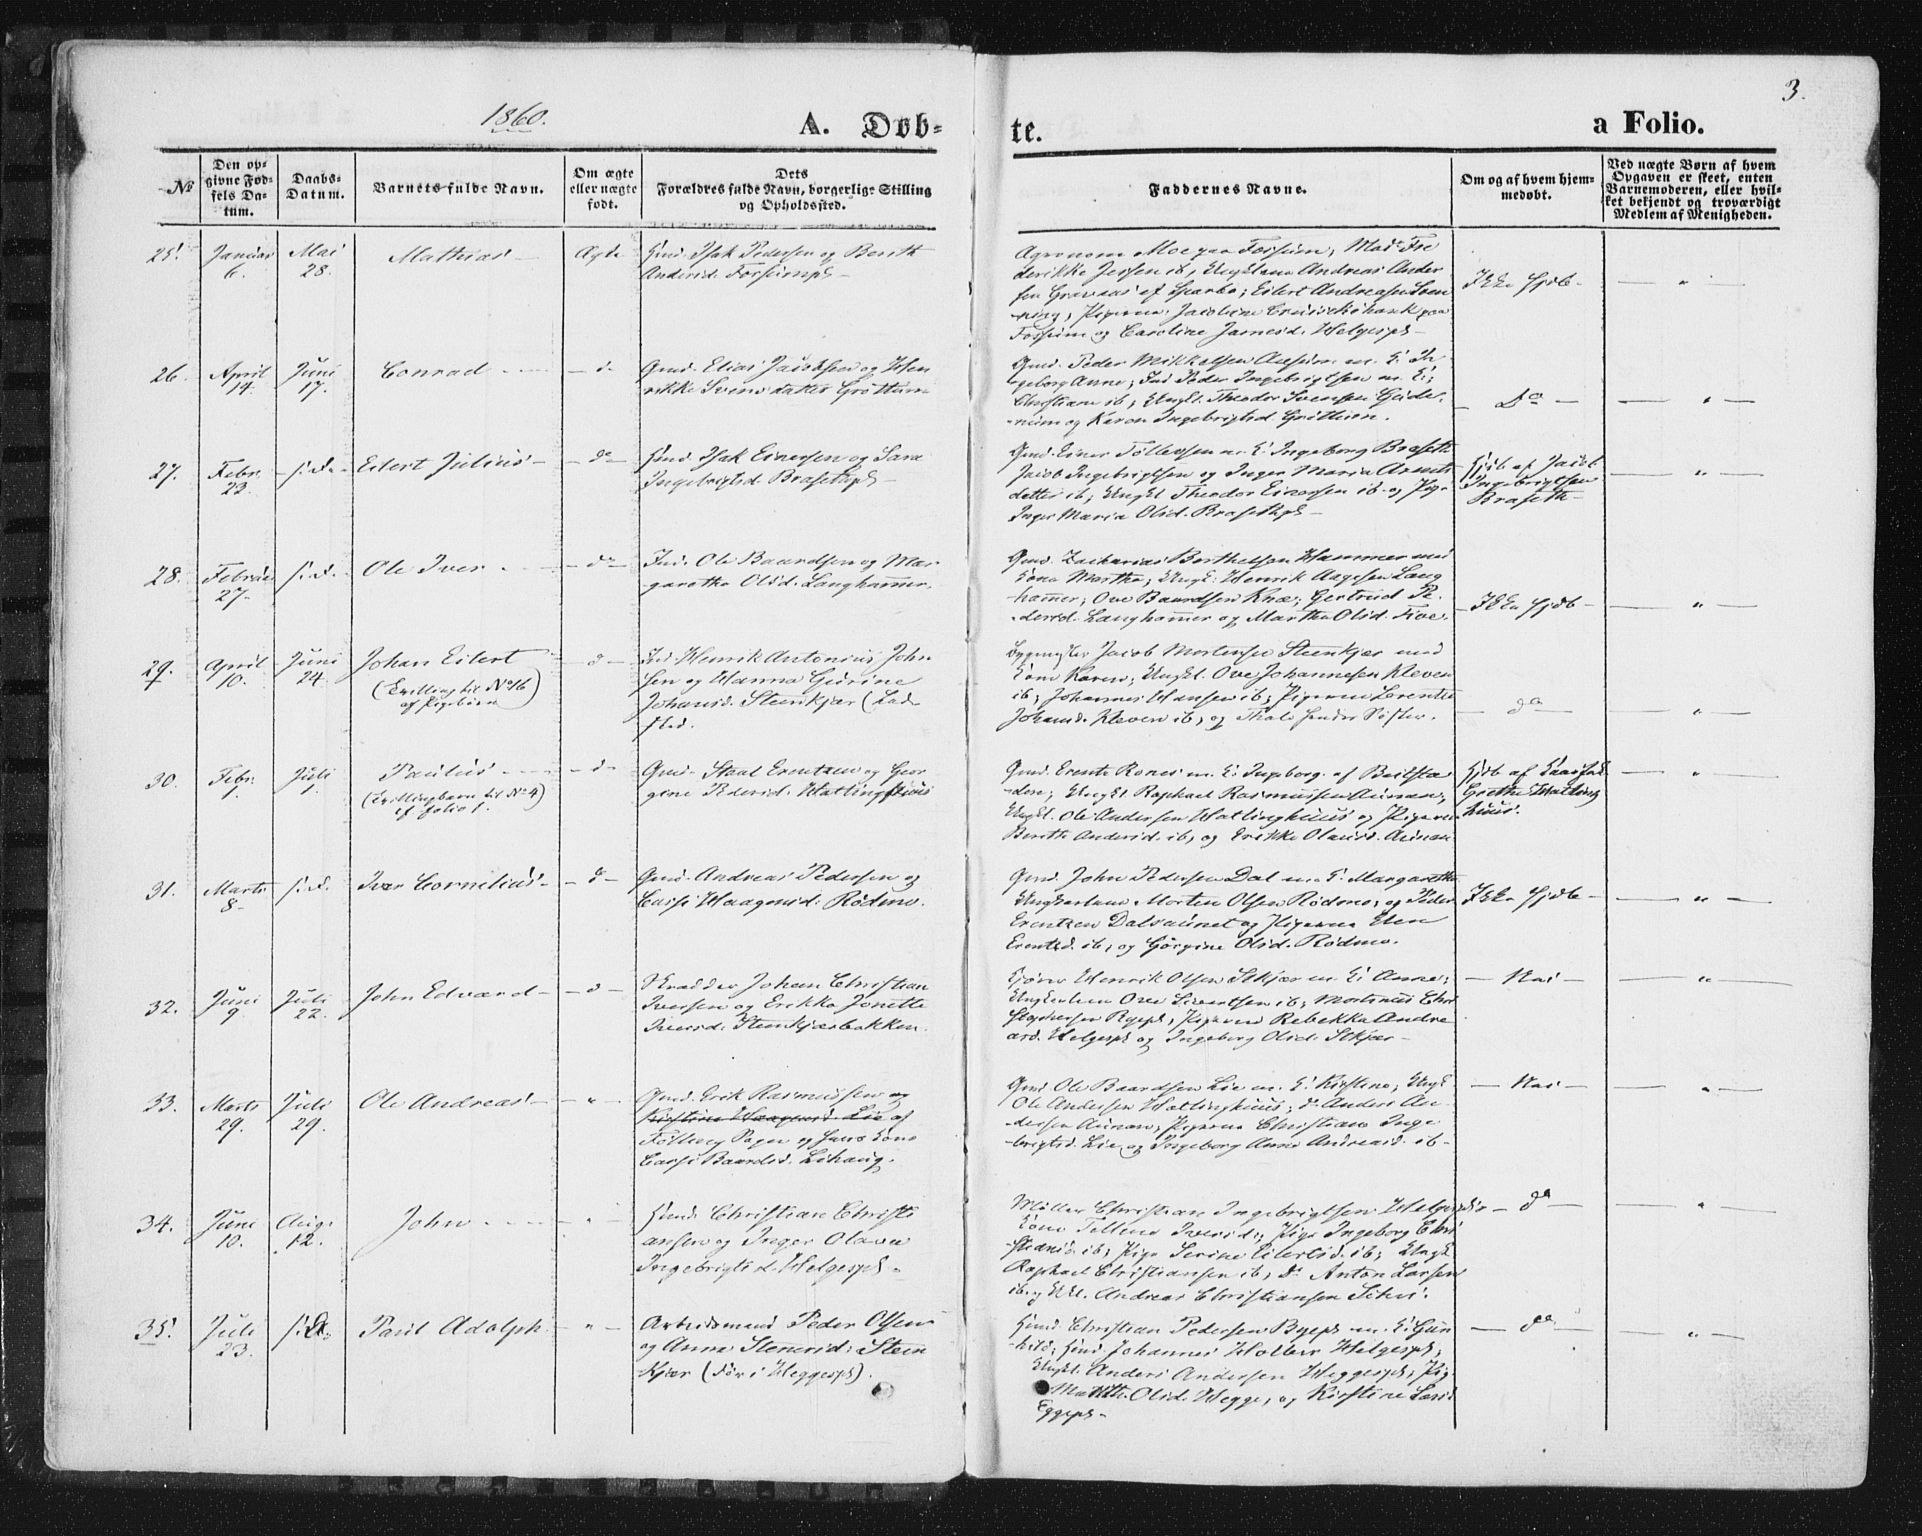 1860.
A. Døb-
te.
a Folio.
3.
№
Den op-
givne Fød-
sels Da-
tum.
Daabs-
Datum.
Barnets fulde Navn.
Om ægte
eller uægte
født.
Dets
Forældres fulde Navn, borgerlige Stilling
og Opholdssted.
Faddernes Navne.
Om og af hvem hjem-
medøbt.
Ved uægte Børn af hvem
Opgaven er skeet, enten
Barnemoderen, eller hvil-
ket bekjendt og troværdigt
Medlem af Menigheden.
25.
Januar
6.
Mai
28.
Mathias
Ægte
Huusmd. Isak Pedersen og Berith
Andersd. Fossumpl.
Agronom Moe paa Fossum, Mad. Fre
derikke Jessen ib, Ungkarlene Andreas Ander
sen
af Sparbo; Eilert Andreasen
Pigerne Jacobine
paa
Fossum og Caroline Helgespl.
Ikke hjdb.
26.
April
14.
Juni
17.
Conrad
d
Gmd. Elias Jacobsen og Hen
rikke Svensdatter Grøttum
Gmd. Peder Mikkelsen m. K. In
geborg Anne; Ind. Peder Ingebrigtsen m. K.
Christiane ib; Ungk. Theodor Svensen
og Karen Ingebrigtsd
Do
27.
Febr.
23.
s. D.
Eilert Julius
do
Huusmd. Isak Einersen og Sara
Ingebrigtsd. Brasethpl.
Gmd. Einer Tollevsen m. K. Ingeborg Braseth
Jacob Ingebrigtsen og Inger Maria Arnts
datter ib, Ungk. Theodor Einersen ib. og Pig.
Inger Maria Olsd. Brasethpl.
Hjdb af Jacob
Ingebrigtsen
Braseth
28.
Februar
27.
s. D.
Ole Iver
do
Ind. Ole Baardsen og Mar
garetha Olsd. Langhammer.
Gmd. Zacharias Berthelsen Hammer med
Kone Martha, Ungk. Henrik Aagesen Lang
hammer; Ove Baardsen Knæ; Gertrud Pe
dersd. Langhammer og Martha Olsd.
Ikke hjdb
29.
April
10.
Juni
24.
Johan Eilert
(Tvilling til No 16
af Pigebørn)
d
Ind. Henrik Antonius John
sen og Hanna Gurine
Johansd. Steenkjær (Lad
sted.
Bygmester Jacob Mortensen Steenkjær med
Kone Karen, Ungk. Ove Johannesen Kleven
ib; Johannes Hansen ib, Pigerne Lorentse
Johansd. Kleven ib, og Thale hendes Søster.
do
30.
Febr.
1.
Juli
1.
Paulus
(Tvillingbarn til No 4)
af folio 1.
d
Gmd. Erentzen og Geor
gine Pedersd. Hatlinghuus
Gmd. Erentz Rones m. K. Ingeborg. af Beitsta
den; Ungk. Raphael Rasmussen Aunan,
Ungk. Ole Andersen Hatlinghuus og Pigerne
Berith Andersd. ib, og Erikka Olausd. Aunan
Hjdb af
Grethe Hatling
huus.
31.
Marts
8.
s. D.
Iver Cornelius
d
Gmd. Andreas Pedersen og
Haagensd. Rødmo.
Gmd. John Pedersen Dal m. K. Margaretha
Ungkarlene Morten Olsen Rødmo, og Peder
Erentzen Dalsaunet og Pigerne Elen
Erentzd. ib, og Gørgine Olsd. Rødmo.
Ikke hjdb
32.
Juni
9.
Juli
22.
John Edvard
d
Skrædder Johan Christian
Iversen og Erikka Jonette
Iversd. Steenkjærbakken.
Henrik Olsen Stkjær m. K. Anne;
Ungkarlene Ove Sivertsen ib; Mortinus Chri
stophersen Pigerne Rebekka Andre
asd. Helgespl. og Ingeborg Olsd. Stkjær
Nei
33.
Marts
29.
Juli
29.
Ole Andreas
Gmd. Erik Rasmussen og
Kirstine Haagensd. Lie af
Følling Sogn og hans Kone
Baardsd. Lihaug.
Gmd. Ole Baardsen Lie m. K. Kirstine, Ungk
Ole Andersen Hatlinghuus; d. Anders An
dersen Aunan, Pigerne Christiane Inge
brigtsd. Lie og Ingeborg Anna Andreasd. ib
Nei
34.
Juni
10.
Aug.
12.
John
Huusmd. Christian Christi
ansen og Inger Olava
Ingebrigtsd. Helgespl.
Møller Christian Ingebrigtsen
Kone Iversd., Pige Ingeborg Chri
stiansd. ib, Pige Serine Eilertsd. ib; Ungk
Raphael Christiansen ib, d. Anton Larsen
ib. og Ungk. Andreas Christiansen
do
35.
Juli
23.
s. D.
Paul Adolph
Arbeidsmand Peder Olsen
og Anna Steen
kjær (før i Heggespl).
Huusmd. Christian Pedersen Byepl. m. K. Gun
hild, Huusmd. Johannes Helgespl;
Ungk. Anders Andersen Heggespl; Pig.
Olsd. Hegge, og Kirstine Larsd.
Eggepl.
do